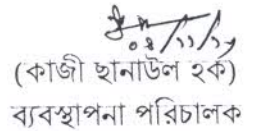 (কাজী ছানাউল হক)
ব্যবস্থাপনা পরিচালক